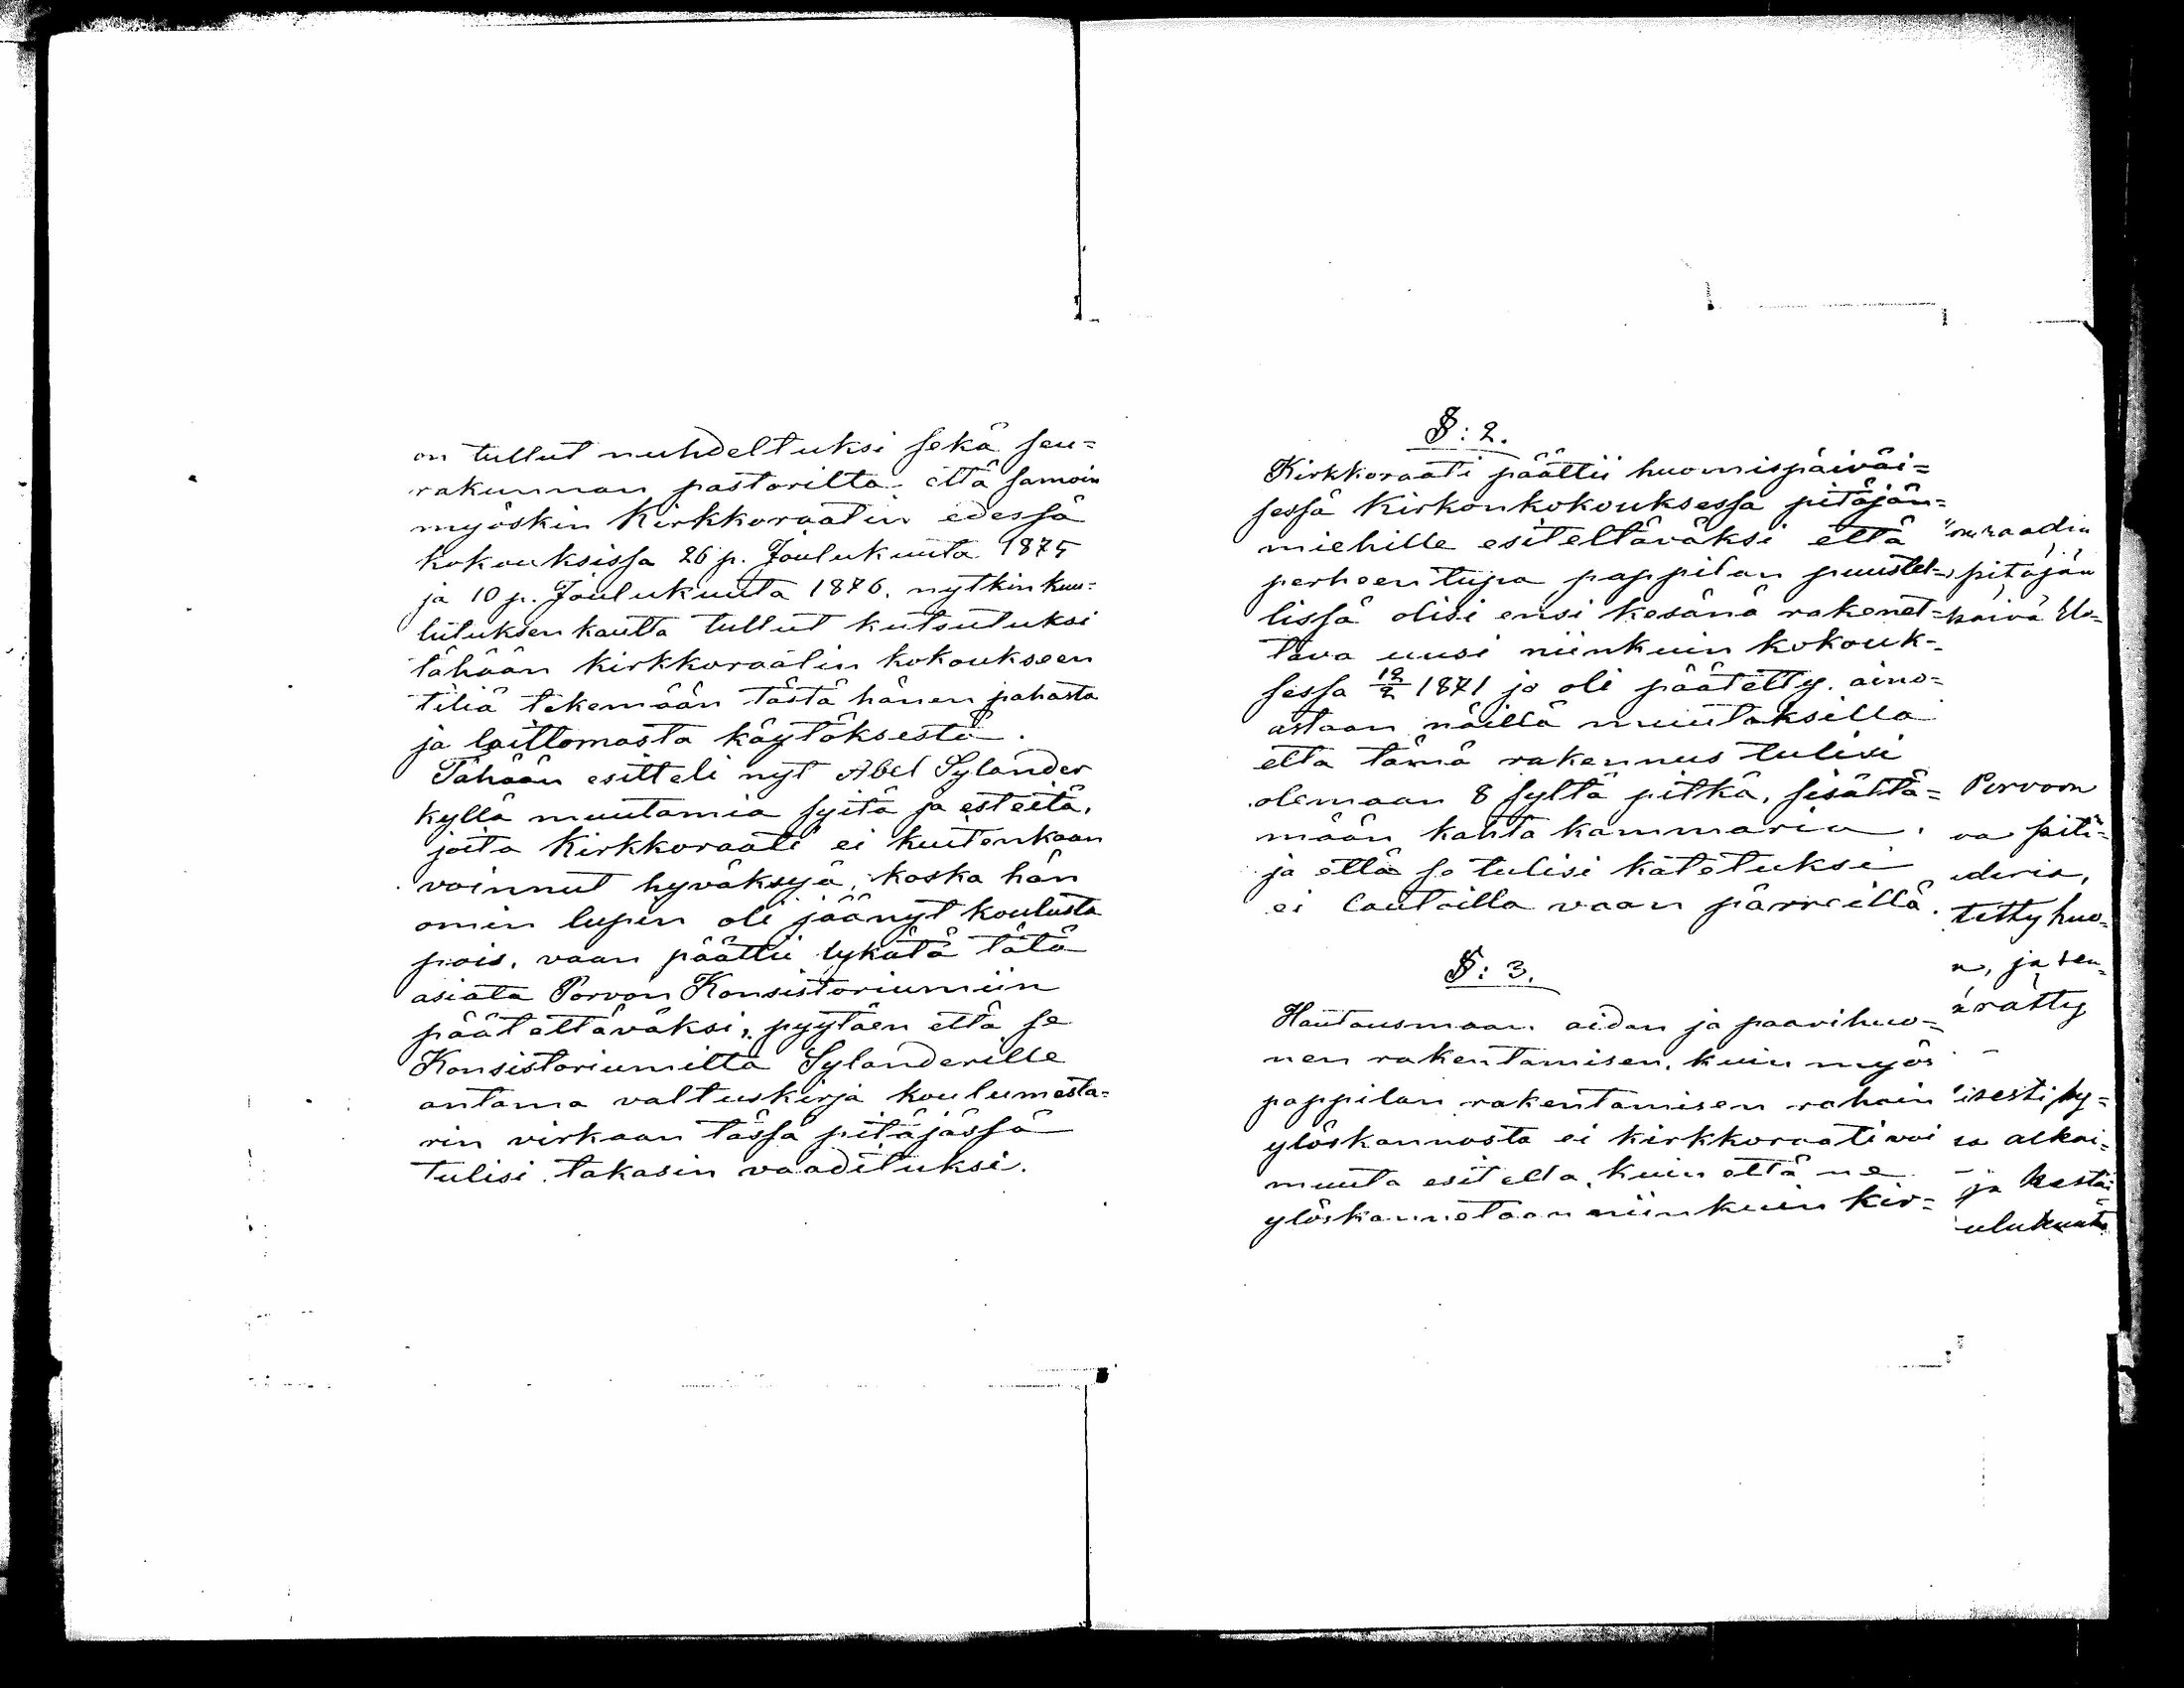 on tullut nuhdeltuksi sekä seu=
rakunnan pastorilta että samoin
myöskin Kirkkoraatin edessä
kokouksissa 26 p. Joulukuuta 1875
ja 10 p. Joulukuuta 1876. nytkin kuu=
lutuksen kautta tullut kutsutuksi
tähään kirkkoraatin kokoukseen
tiliä tekemään tästä hänen pahasta
ja laittomasta käytöksestä.
Tähään esitteli nyt Abel Sylander
kyllä muutamia syitä ja esteitä,
joita Kirkkoraati ei kuitenkaan
voinnut hyväksyä, koska hän
omin lupin oli jäänyt koulusta
pois, vaan päätti lykätä tätä
asiata Porvon Konsistoriumiin
päätettäväksi, pyytäen että se
Konsistoriumilta Sylanderille
antama valtuskirja koulumesta=
rin virkaan tässä pitäjässä
tulisi takasin vaadituksi.
§: 2.
Kirkkoraati päättii huomispäiväi=
sessä Kirkonkokouksessa pitäjän=
miehille esiteltäväksi että
perheen tupa pappilan puustel=
lissä olisi ensi kesänä rakenet=
tava uusi niinkuin kokouk=
sessa 12/2 1871 jo oli päätetty. aino=
astaan näillä muutoksilla
että tämä rakennus tulisi
olemaan 8 syltä pitkä, sisältä=
mään kahta kammaria,
ja että se tulisi katetuksi
ei laudoilla vaan päreillä.
§: 3.
Hautausmaan aidan ja paarihuo=
nen rakentamisen, kuin myös
pappilan rakentamisen rahain
ylöskannosta ei kirkkoraati voi
muuta esitellä, kuin että ne
ylöskannetaan niinkuin kir=
raadin
pitäjän
päivä Elo=
Porvoon
va pitä=
deria,
tetty huo=
n, ja seu=
ärätty
isesti hy=
sa alkai=
ja kestäi
ulukuuta